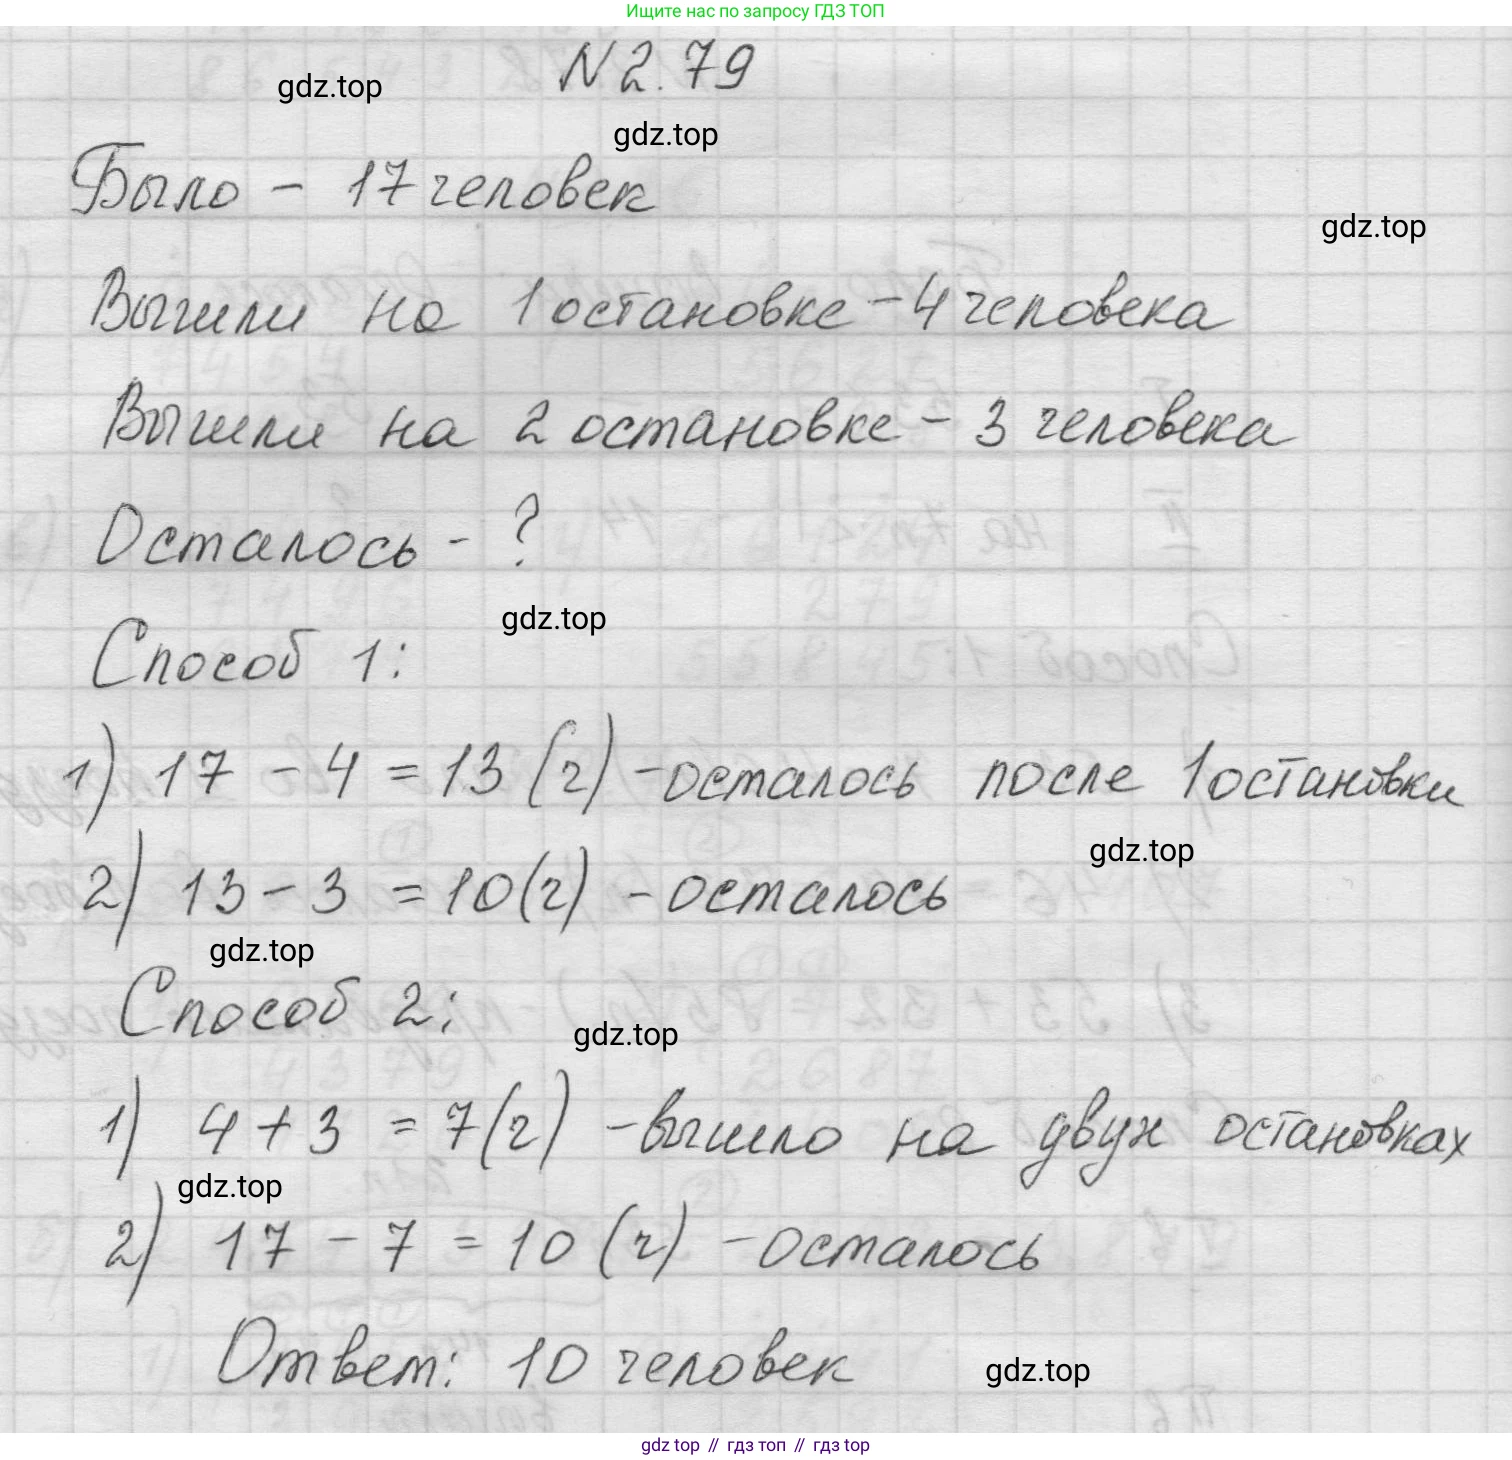 Ищите нас по запросу ГДЗ ТОП
N 2.79
gdz.top
gdz.top
Было - 17 человек
gdz.top
Вышли на 1 остановке - 4 человека
Вышли на 2 остановке - 3 человека
Осталось - ?
gdz.top
Способ 1:
1) 17 - 4 = 13 (ч) - осталось после 1 остановки
gdz.top
2) 13 - 3 = 10 (ч) - осталось
gdz.top
Способ 2:
gdz.top
1) 4 + 3 = 7 (ч) - вышло на двух остановках
gdz.top
2) 17 - 7 = 10 (ч) - осталось
Ответ: 10 человек
gdz.top
gdz top // гдз топ // гдз top